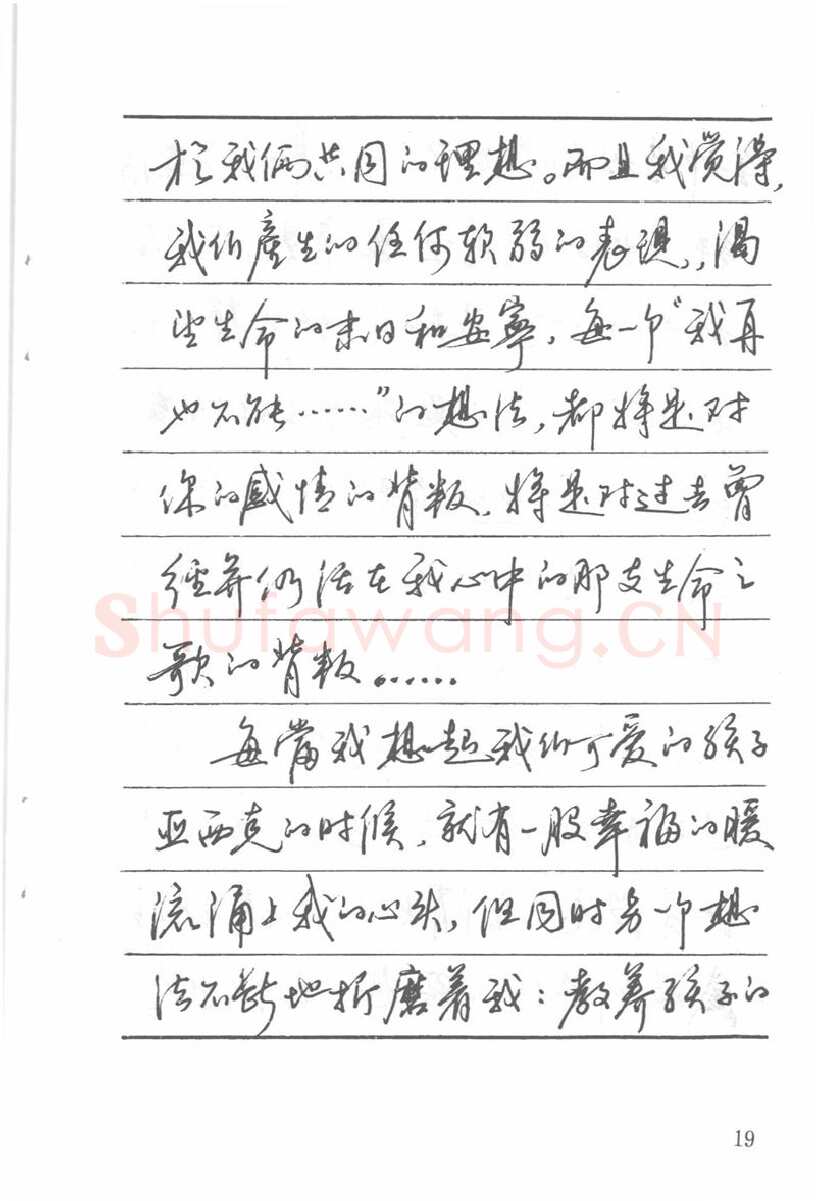 於我俩共同的理想。而且我觉得，
我们產生的任何软弱的表現，渴
望生命的末日和安寧，每一个“我再
也不能……”的想法，都将是对
你的感情的背叛，将是对过去曾
經并仍活在我心中的那支生命之
歌的背叛……
每當我想起我们可爱的孩子
亚西克的时候，就有一股幸福的暖
流涌上我的心头，但同时另一个想
法不断地折磨着我：教养孩子的
Shufawang.CN
19